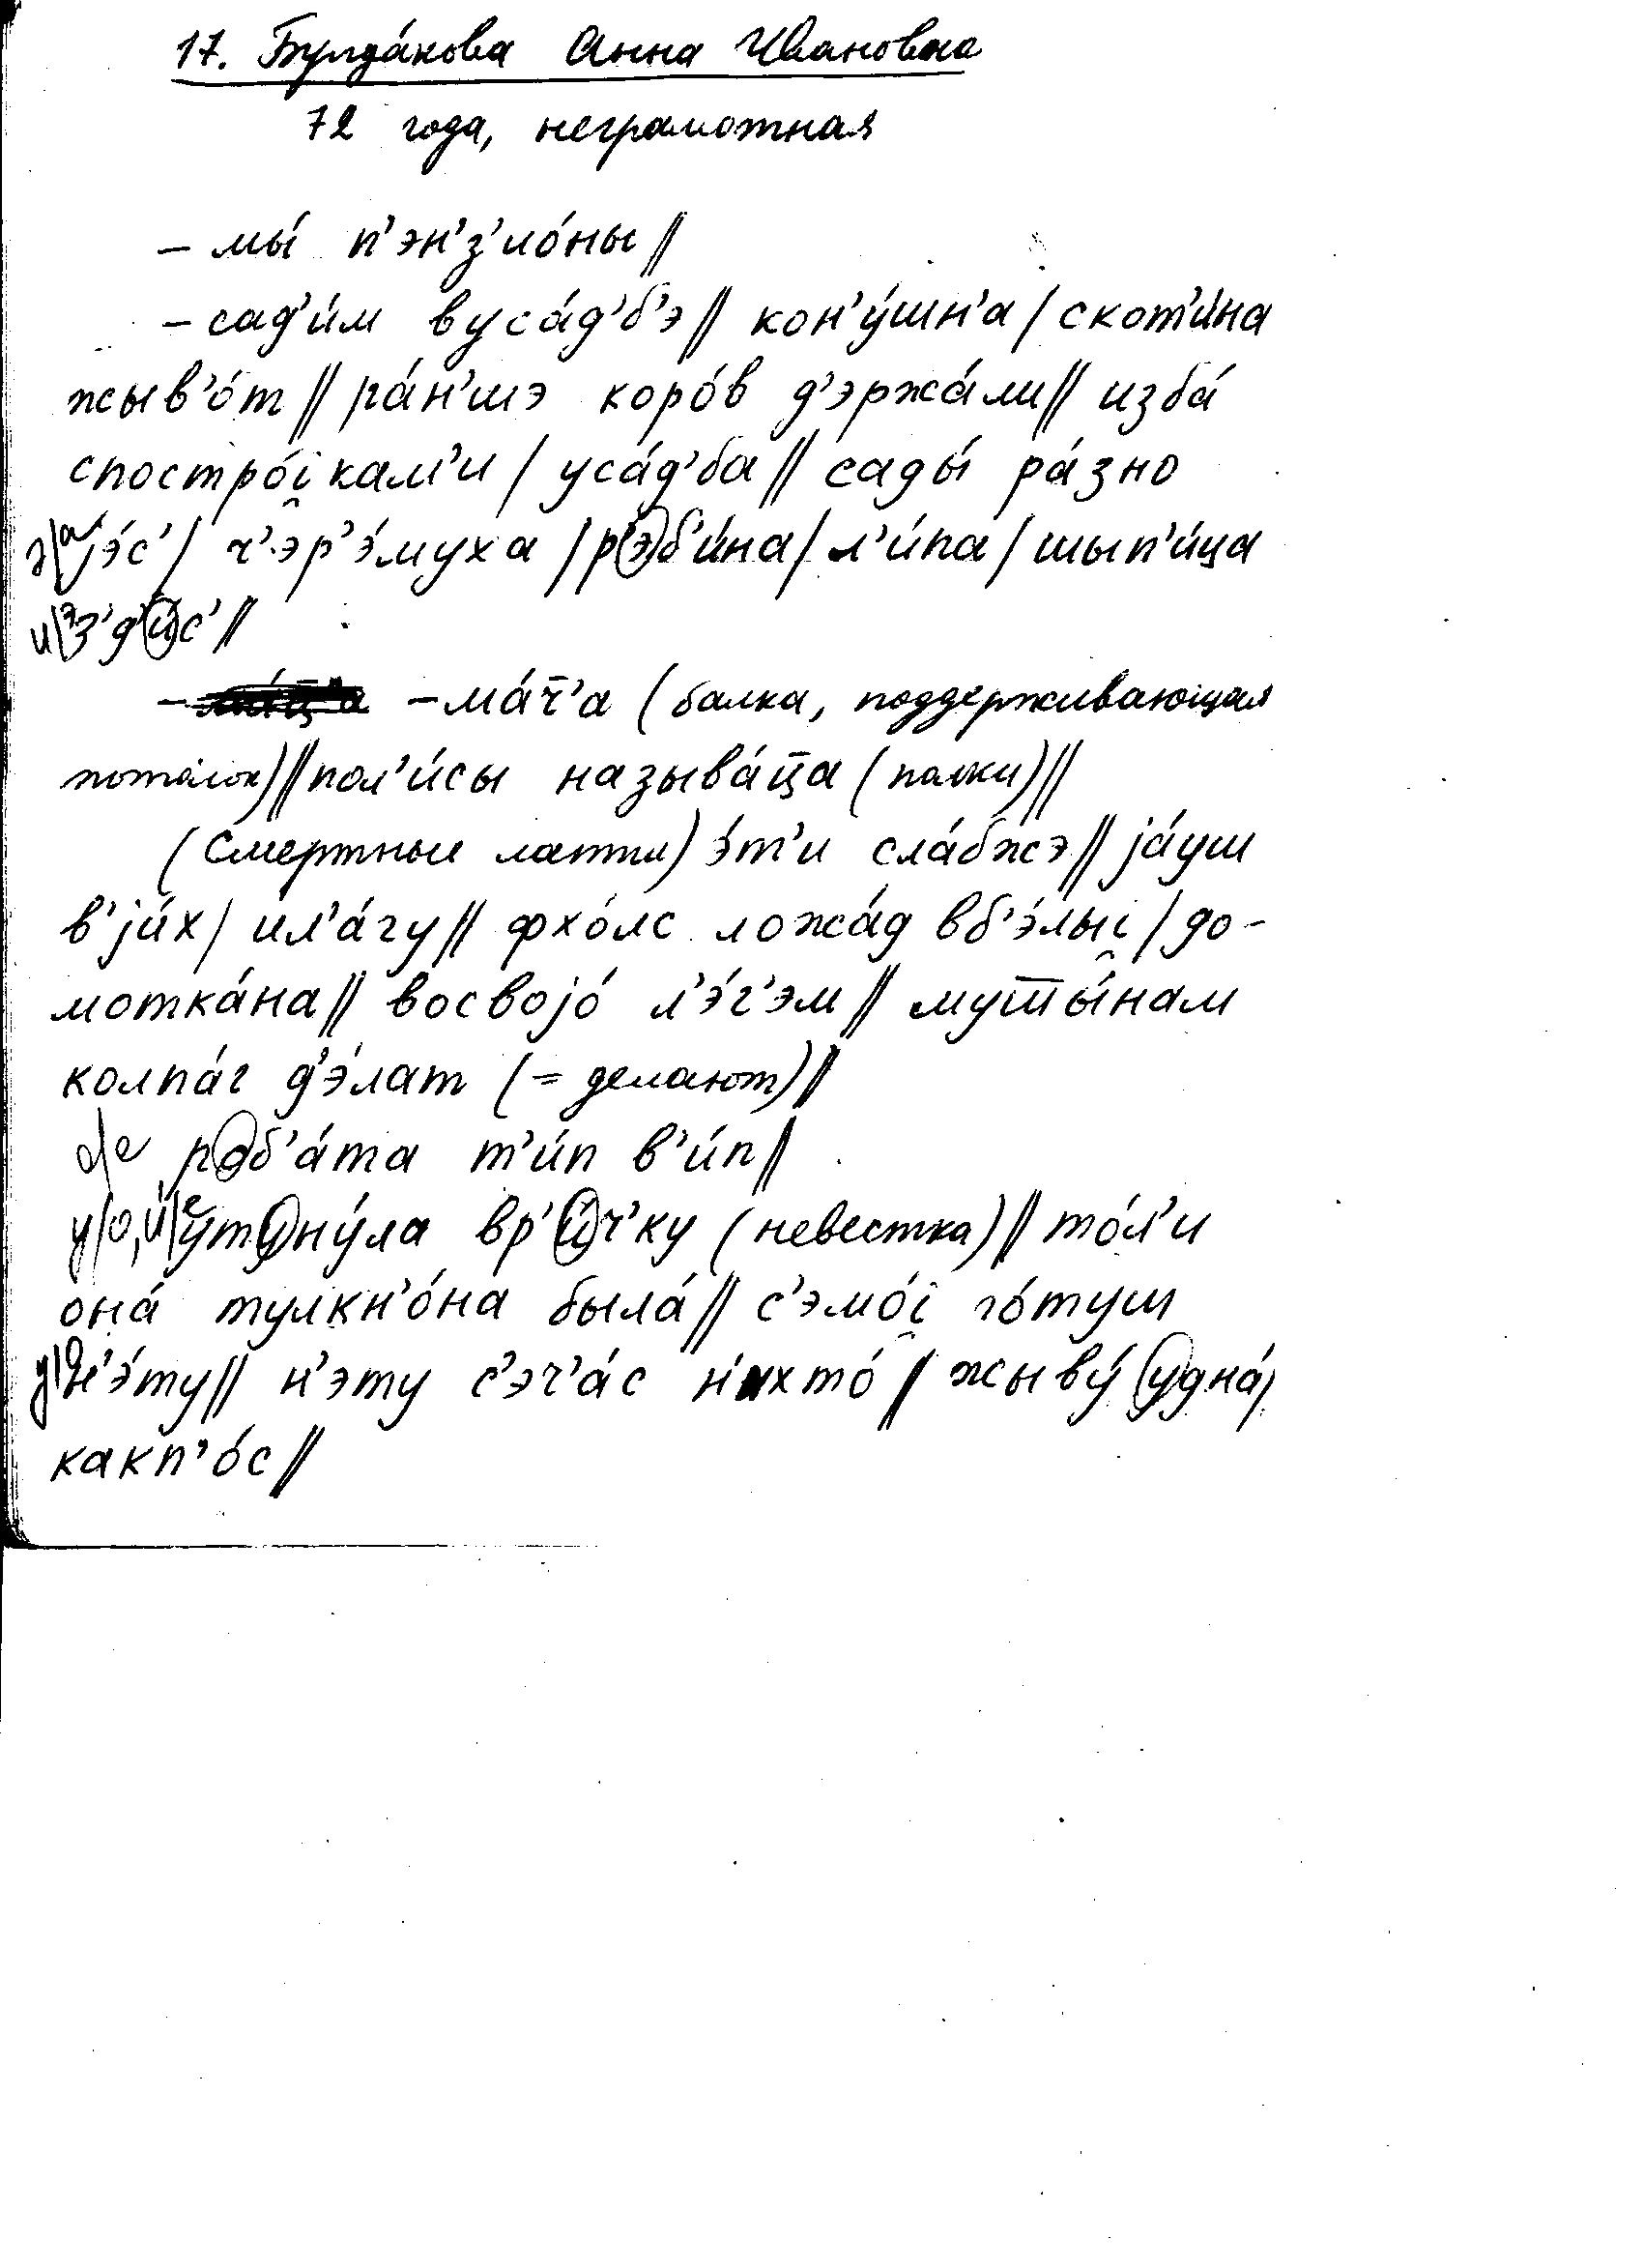 17. Булда́кова Анна Ивановна
72 года, неграмотная
– мы́ п'эн'з'ио́ны //
– сад'и́м вуса́д'б'э // кон'у́шн'а / скот'и́на
жыв'о́т // ра́н'шэ коро́в д'эржа́ли // изба́
спостро́i̯кам'и / уса́д'ба // сады́ ра́зно
э/а jэ́с' / ч'эр'э́муха / р'эб'и́на / л'и́па / шып'и́ца
и/э з'д'и́с' //
– ма́ч̅'а (балка, поддерживающая
потолок) // пол'и́сы называ́ц̅а (полки) //
(Смертные лапти) э́т'и сла́бжэ // jа́уш
в'jи́х / ил'а́гу // фхо́лс ложа́д вб'э́лыi̯ / до-
мотка́на // восвоjо́ л'э́г'эм // мут̅ы́нам
колпа́г д'э́лат (= делают) //
р'об'а́та т'и́п в'и́п //
ут'ону́ла вр'и́ч'ку (невестка) // то́л'и
она́ тулкн'о́на была́ // с'эмо́i̯ го́туш
у/о н'э́ту // н'эту с'эч'а́с н'ихто́ // жыву́ удна́ /
какп'о́с //